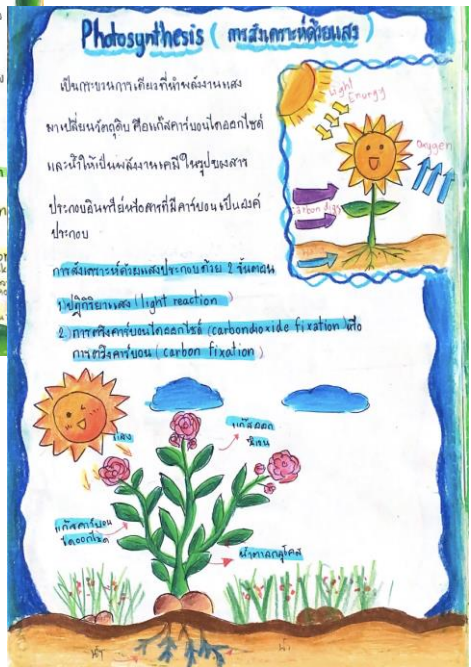 Photosynthesis ( การสังเคราะห์ด้วยแสง )
เป็นกระบวนการเดียวที่นำพลังงานแสง
มาเปลี่ยนวัตถุดิบ คือแก๊สคาร์บอนไดออกไซด์
และน้ำให้เป็นพลังงานเคมี ในรูปของสาร
ประกอบอินทรีย์หรือสารที่มีคาร์บอนเป็นองค์
ประกอบ
Light
Energy
Oxygen
Carbon
การสังเคราะห์ด้วยแสงประกอบด้วย 2 ขั้นตอน
1.)ปฏิกิริยาแสง (light reaction )
2.) การตรึงคาร์บอนไดออกไซด์ (carbondioxide fixation )หรือ
การตรึงคาร์บอน ( carbon fixation )
แสง
แก๊สออก
ซิเจน
แก๊สคาร์บอน
ไดออกไซด์
น้ำตาลกลูโคส
น้ำ
น้ำ